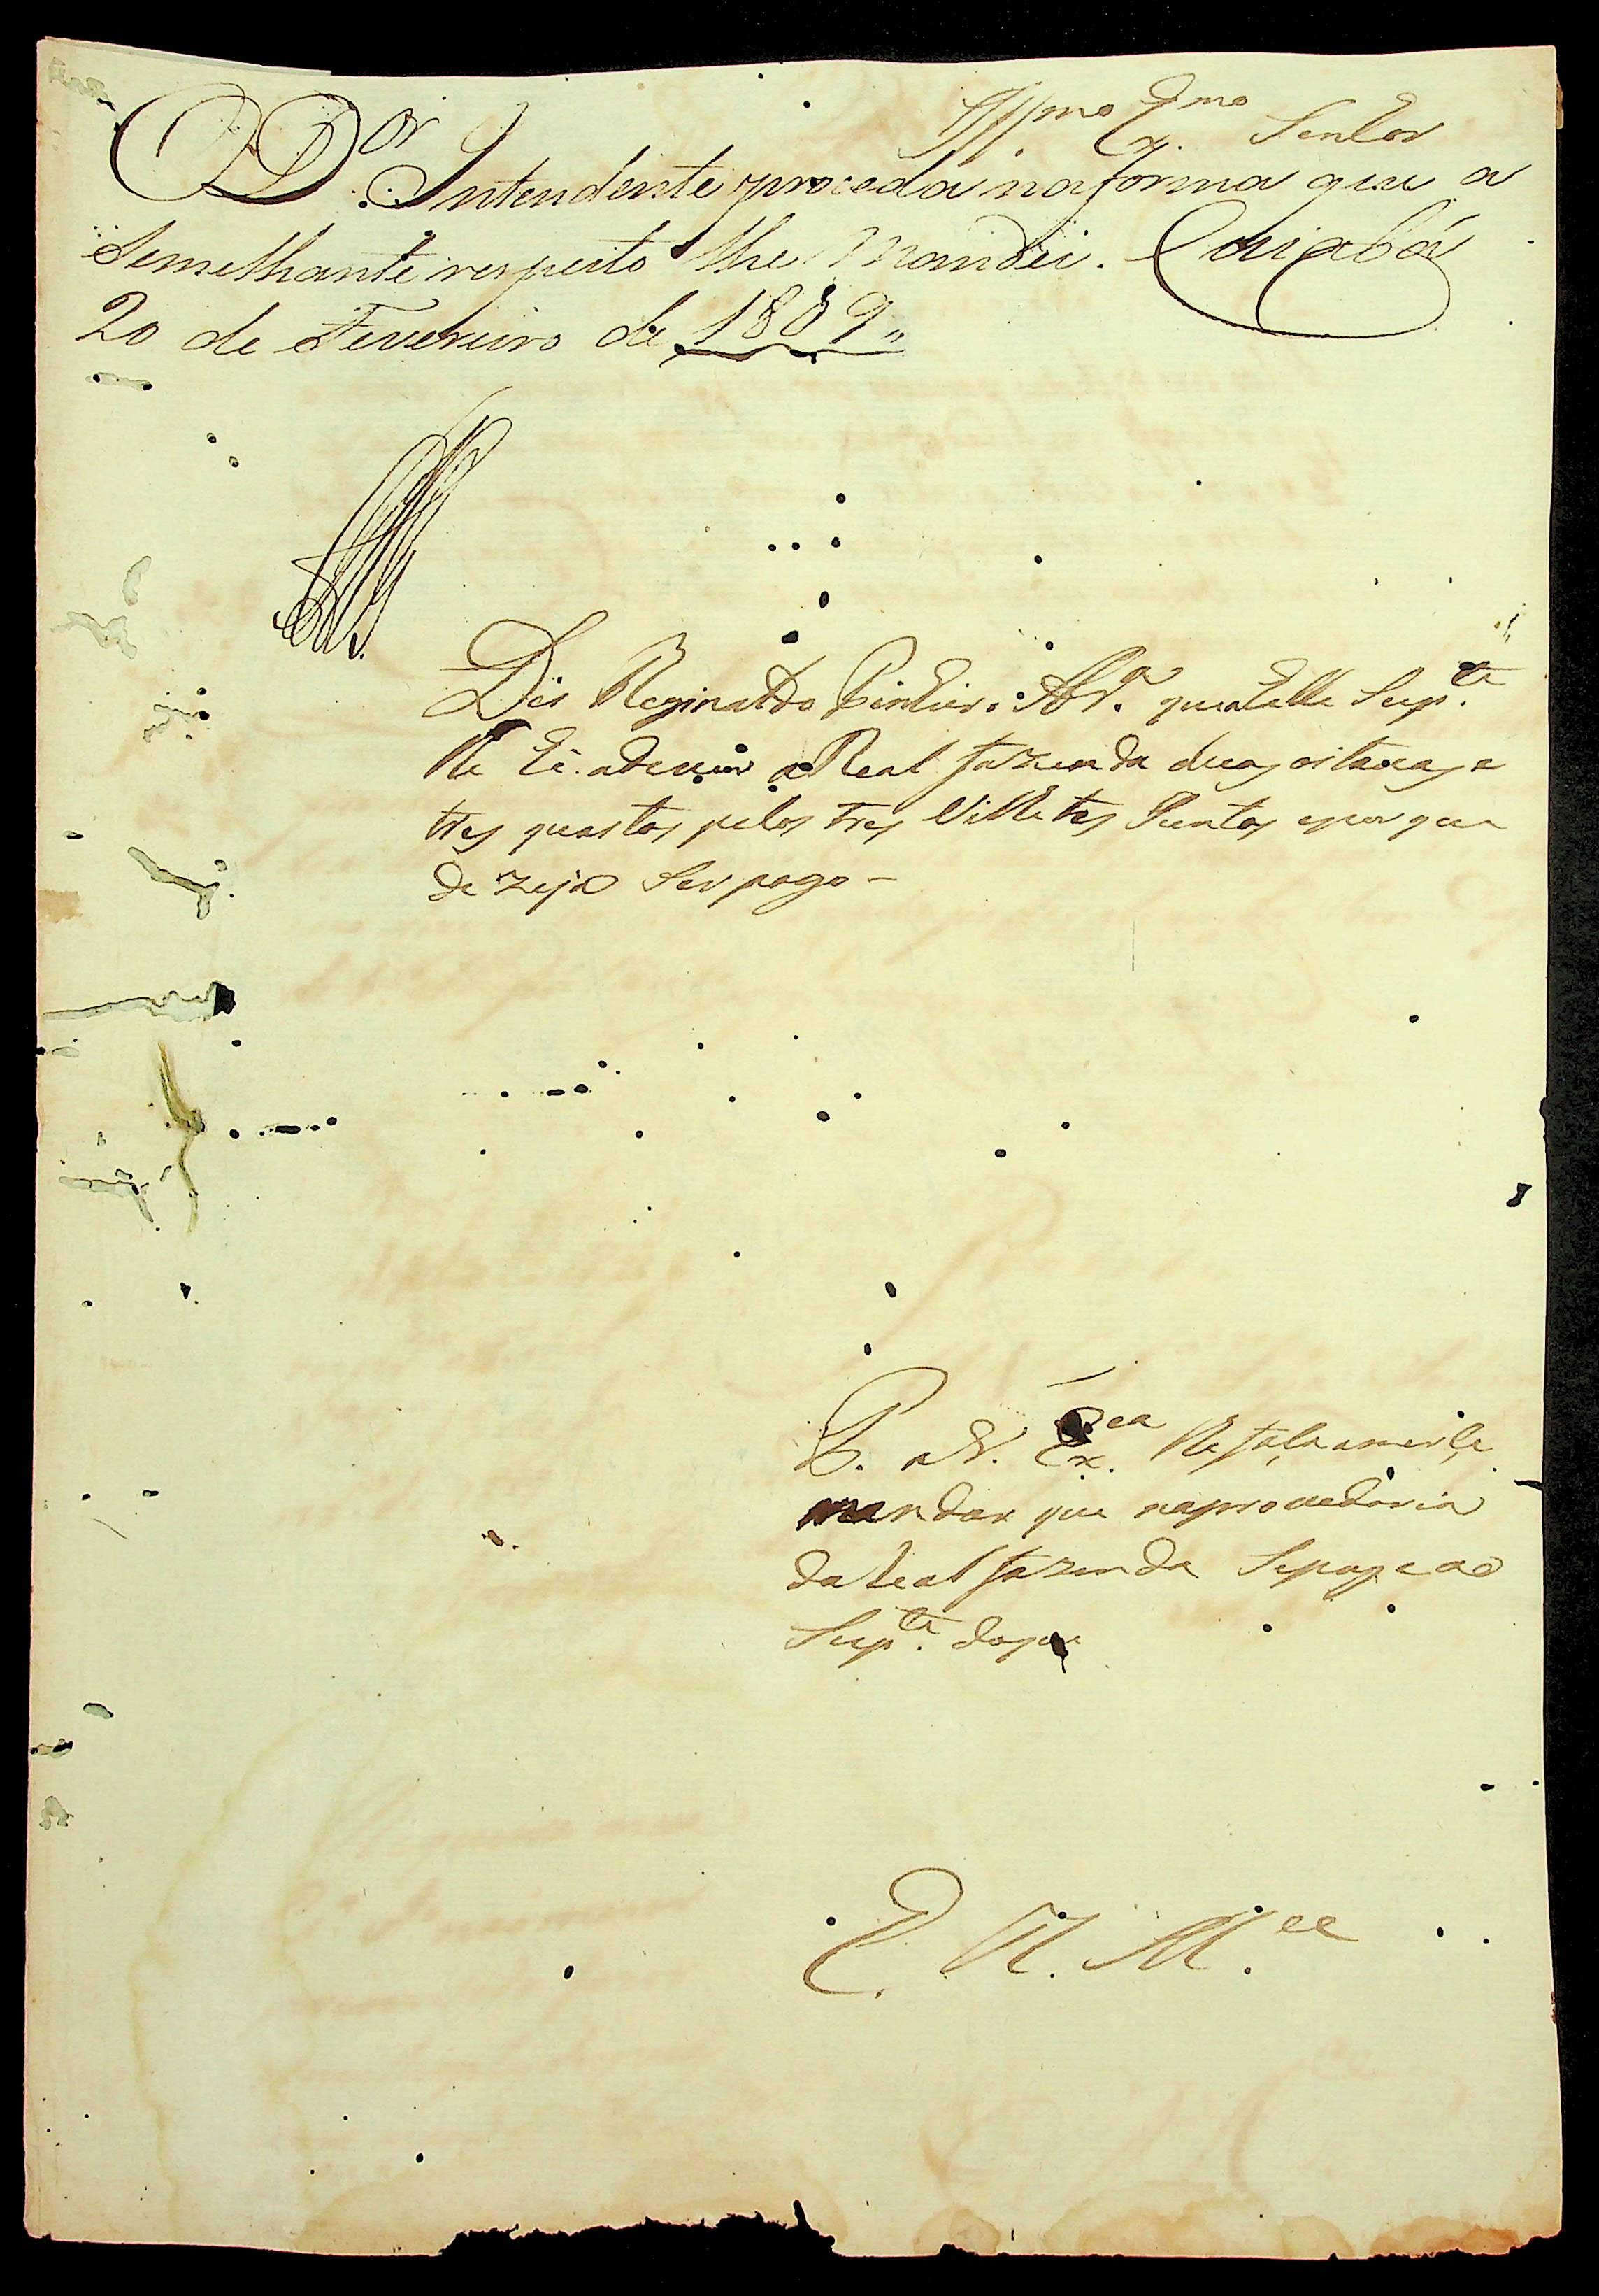 Ill.mo Ex.mo Senhor
O D.or Intendente proceda na forma que a
Semelhante respeito lhe Mandei. Cuiabá
20 de Fevereiro de 1809,,
Dis Reginaldo Pinheiro que elle Sup.te
lhe hé adevir a Real fazenda duas oitavas e
tres quartos pelos tres Villetes Juntos epor que
dezeja Ser pago -
P. a V. Ex.cea lhe faça amerce
mandar que naprovedoria
da Real fazenda Sepague ao
Sup.te
E. R. M.ce